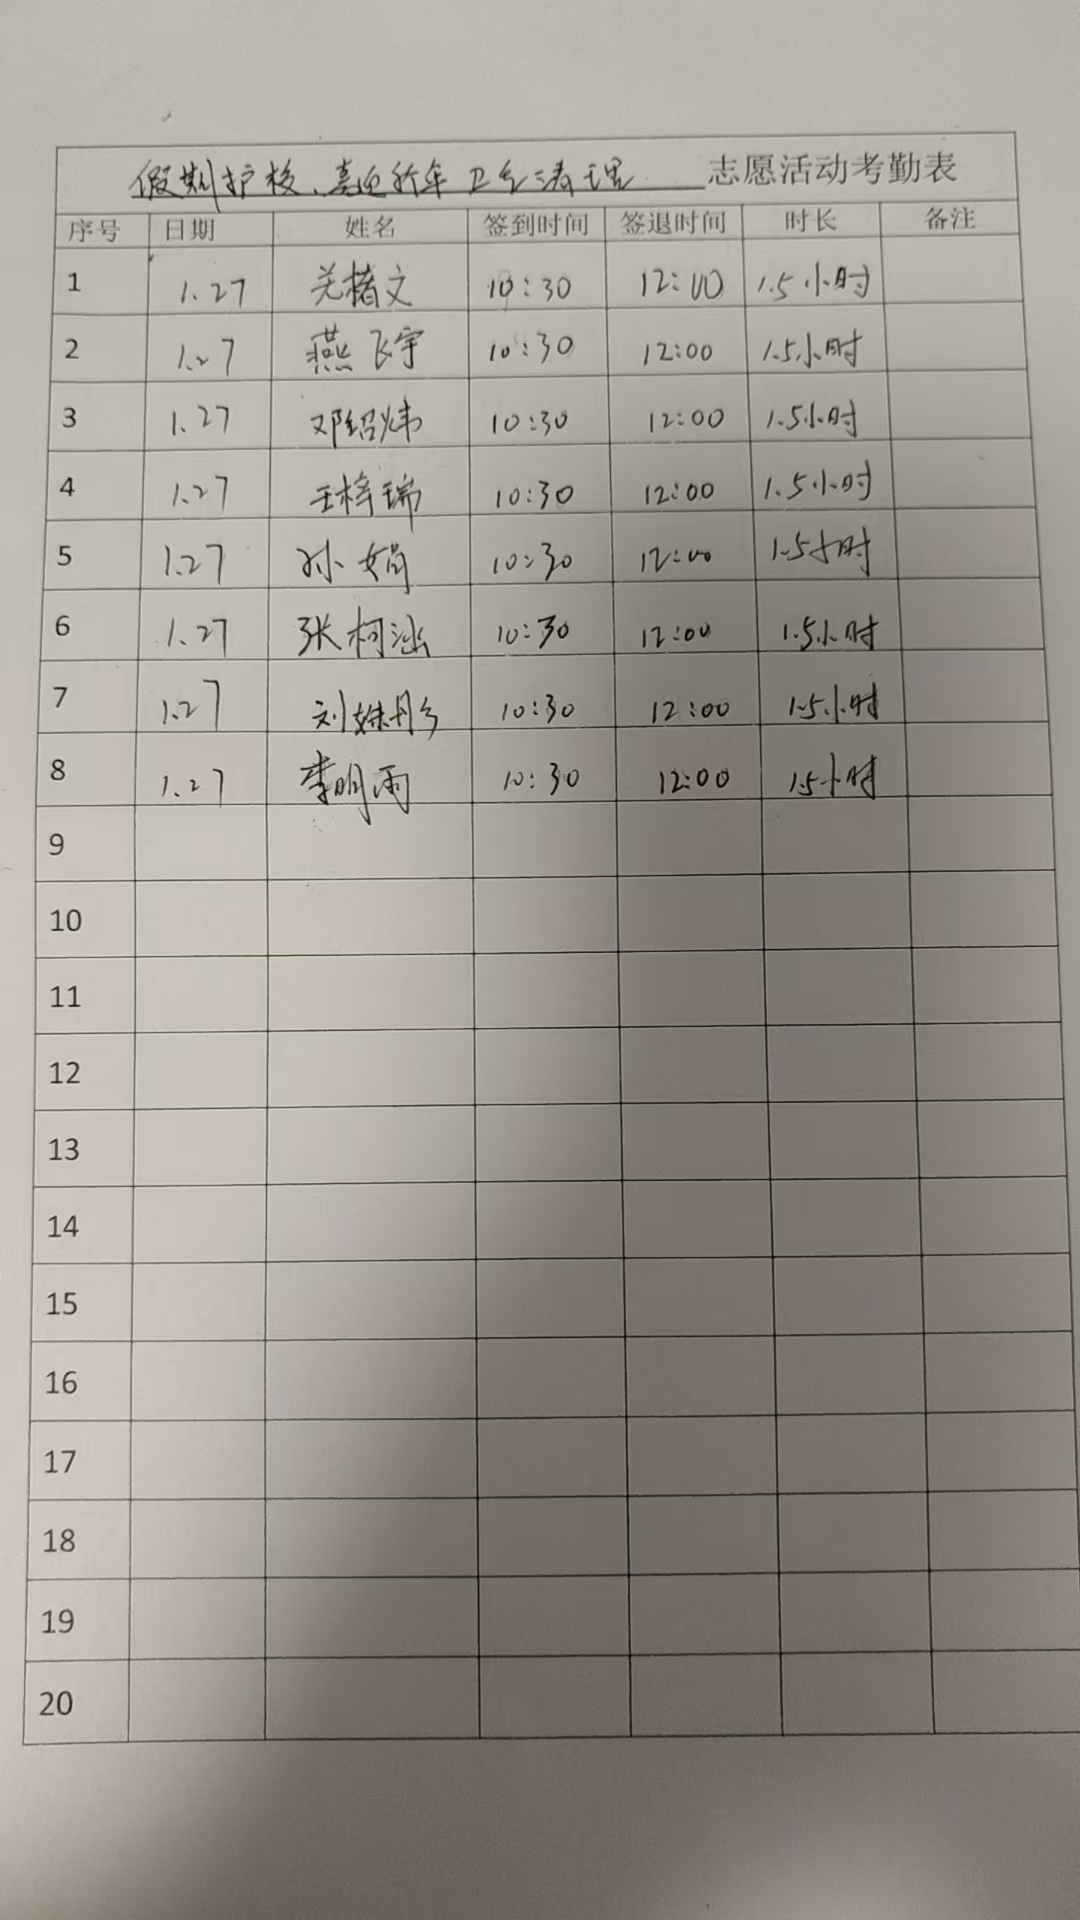 假期护校、喜迎新年卫生清理 志愿活动考勤表
序号 日期 姓名 签到时间 签退时间 时长 备注
1 1.27 关楮文 10:30 12:00 1.5小时
2 1.27 燕飞宇 10:30 12:00 1.5小时
3 1.27 邓绍炜 10:30 12:00 1.5小时
4 1.27 王梓瑞 10:30 12:00 1.5小时
5 1.27 孙娟 10:30 12:00 1.5小时
6 1.27 张柯涵 10:30 12:00 1.5小时
7 1.27 刘姝彤 10:30 12:00 1.5小时
8 1.27 李明雨 10:30 12:00 1.5小时
9
10
11
12
13
14
15
16
17
18
19
20